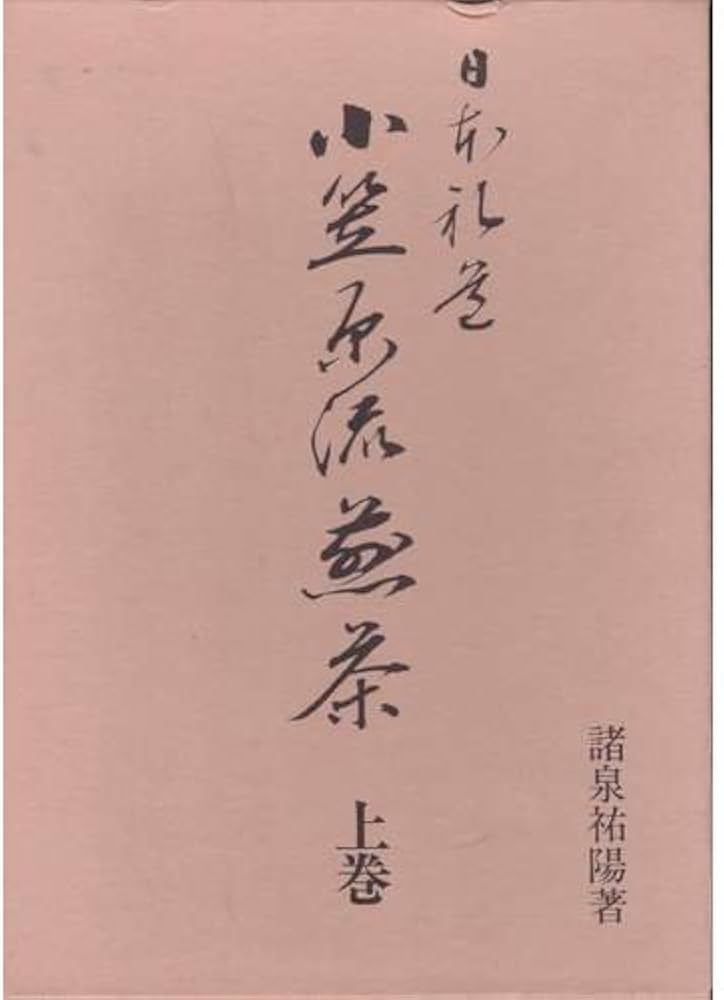 諸泉祐陽著
日本礼道
小笠原流煎茶 上巻